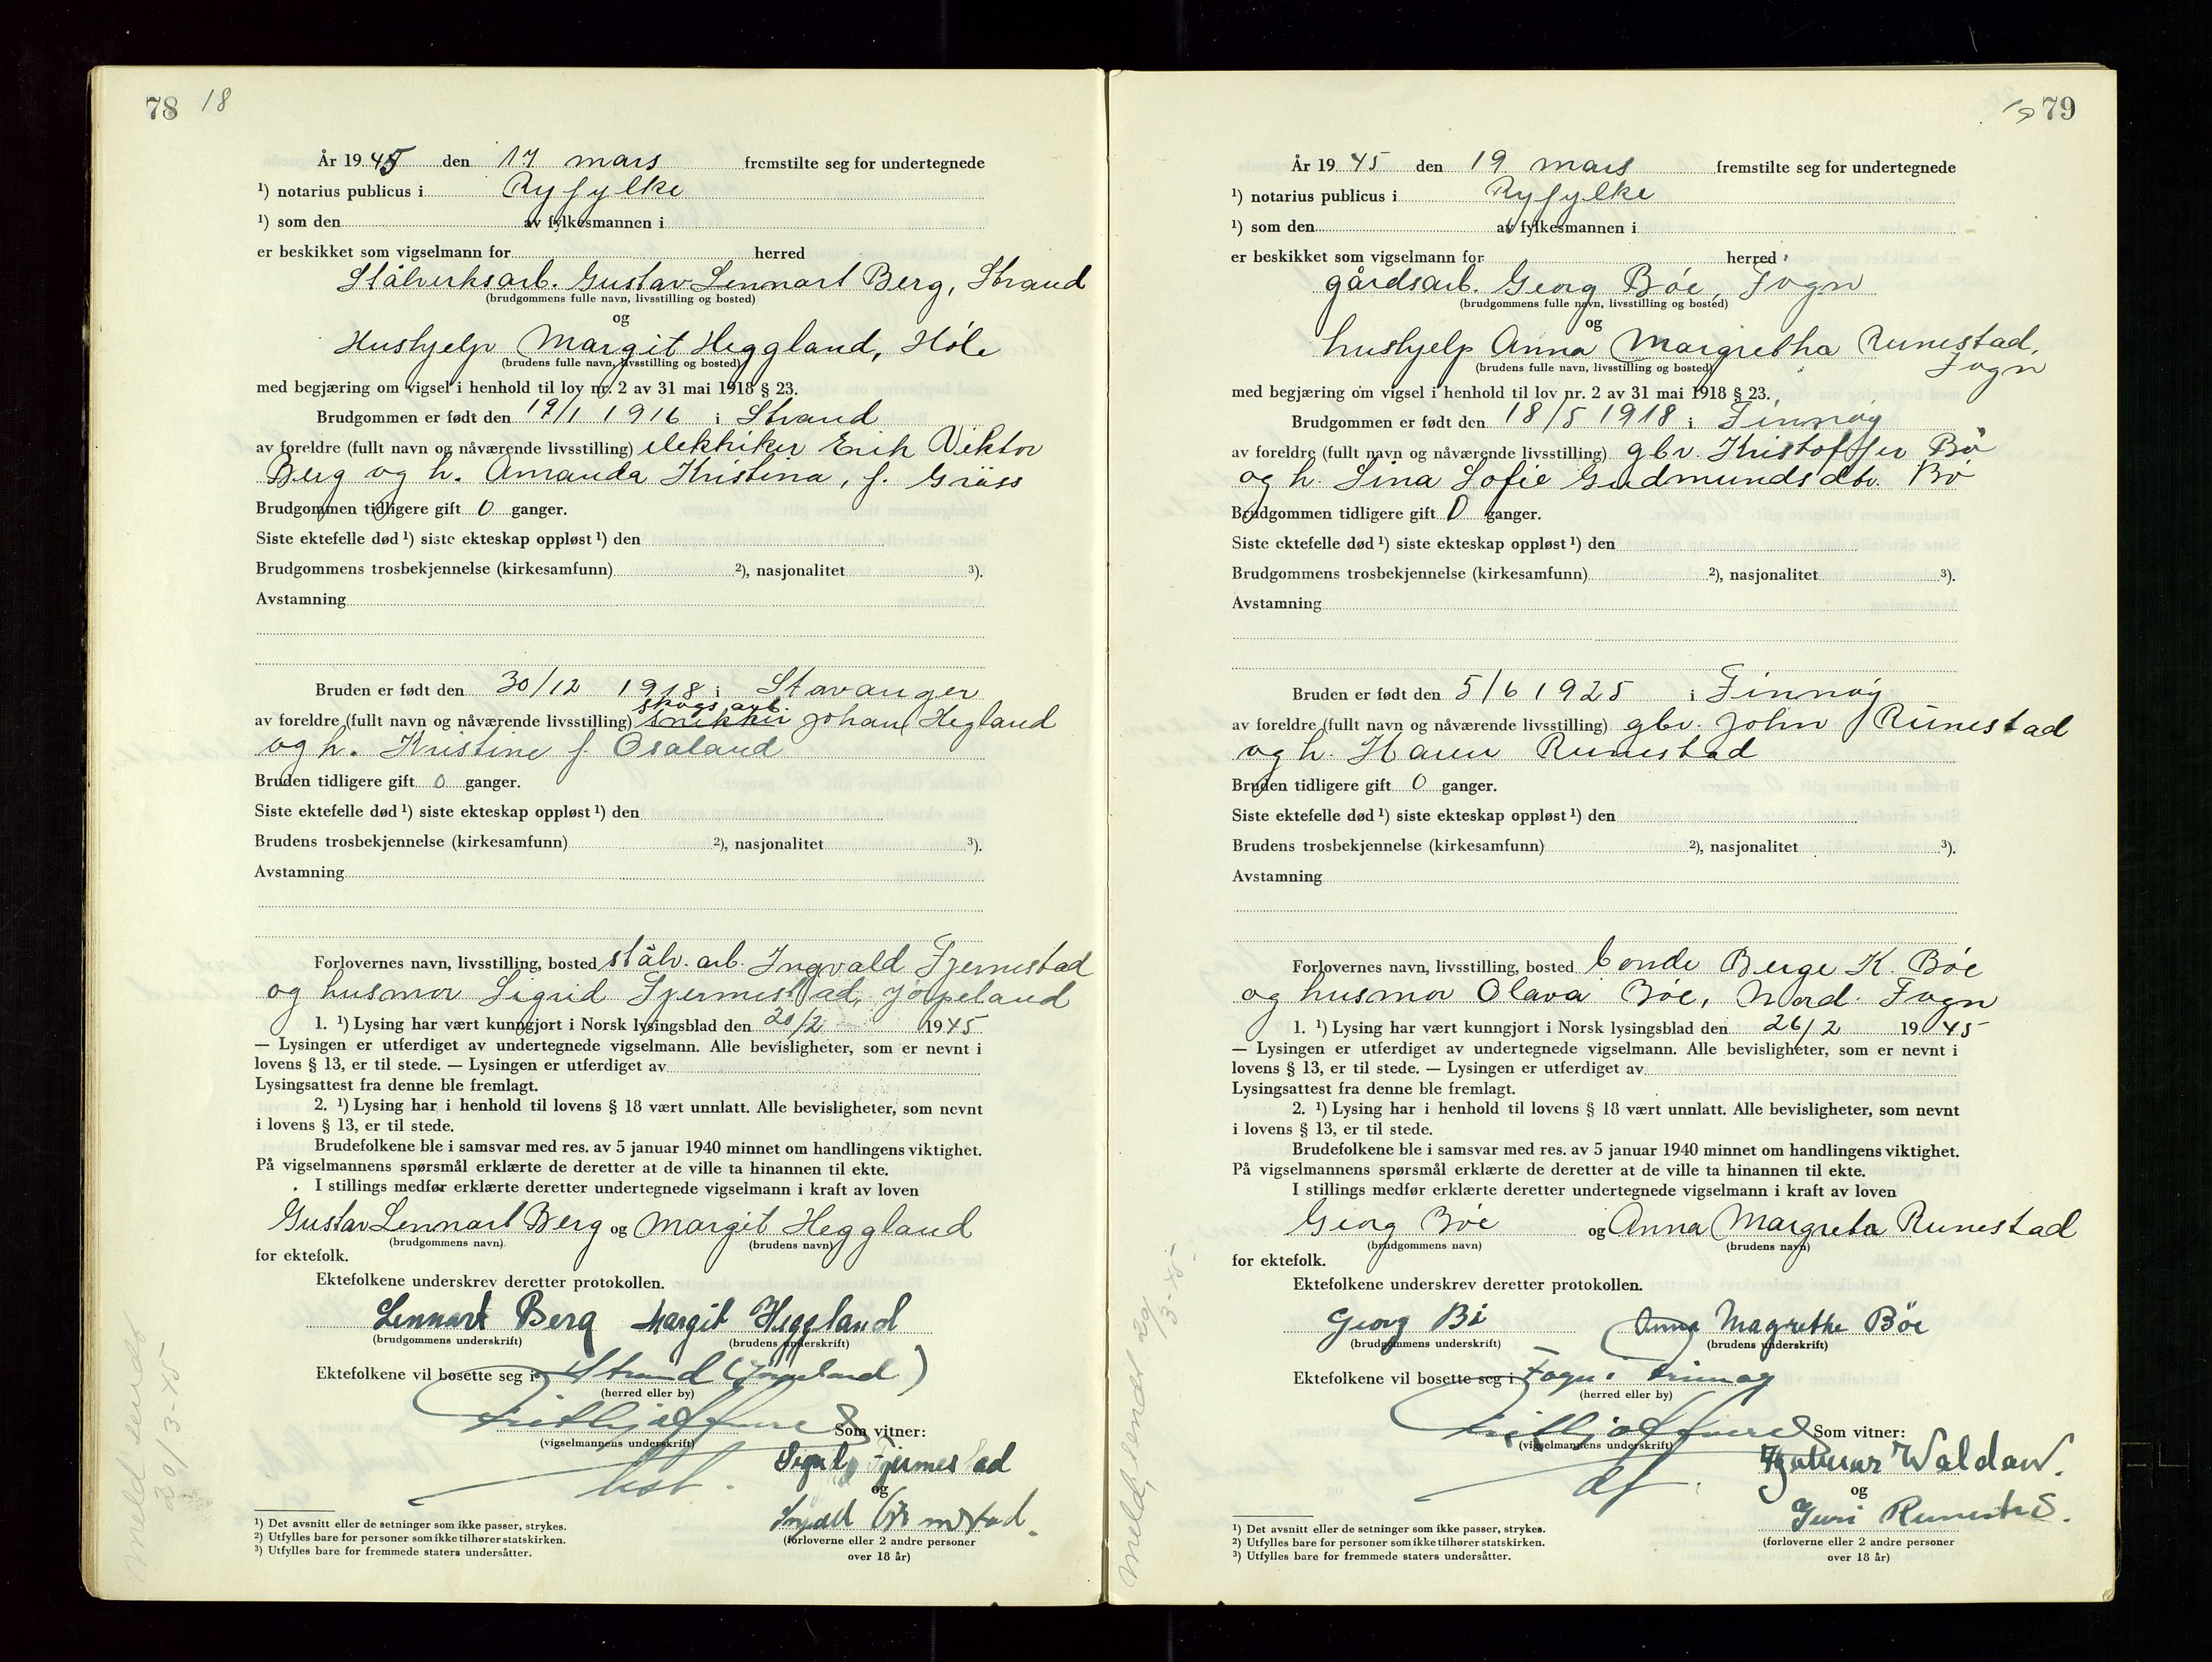 78 18
År 1945 den 17 mars fremstilte seg for undertegnede
¹) notarius publicus i Ryfylke
¹) som den av fylkesmannen i
er beskikket som vigselmann for herred
Stålverksarb. Gustav Lennart Berg, Strand
(brudgommens fulle navn, livsstilling og bosted)
og
Hushjelp Margit Heggland, Høle
(brudens fulle navn, livsstilling og bosted)
med begjæring om vigsel i henhold til lov nr. 2 av 31 mai 1918 § 23.
Brudgommen er født den 19/1 1916 i Strand
av foreldre (fullt navn og nåværende livsstilling) elektriker Erik Viktor
Berg og h. Amanda Kristina, f. Gräss
Brudgommen tidligere gift 0 ganger.
Siste ektefelle død ¹) siste ekteskap oppløst ¹) den
Brudgommens trosbekjennelse (kirkesamfunn) ²), nasjonalitet ³).
Avstamning
Bruden er født den 30/12 1918 i Stavanger
skogsarb.
av foreldre (fullt navn og nåværende livsstilling) snikker Johan Hegland
og h. Kristine f. Osaland
Bruden tidligere gift 0 ganger.
Siste ektefelle død ¹) siste ekteskap oppløst ¹) den
Brudens trosbekjennelse (kirkesamfunn) ²), nasjonalitet ³).
Avstamning
Forlovernes navn, livsstilling, bosted stålv. arb. Ingvald Fjermestad
og husmor Sigrid Fjermestad, Jørpeland
1. ¹) Lysing har vært kunngjort i Norsk lysingsblad den 20/2 1945
— Lysingen er utferdiget av undertegnede vigselmann. Alle bevisligheter, som er nevnt i
lovens § 13, er til stede. — Lysingen er utferdiget av
Lysingsattest fra denne ble fremlagt.
2. ¹) Lysing har i henhold til lovens § 18 vært unnlatt. Alle bevisligheter, som nevnt
i lovens § 13, er til stede.
Brudefolkene ble i samsvar med res. av 5 januar 1940 minnet om handlingens viktighet.
På vigselmannens spørsmål erklærte de deretter at de ville ta hinannen til ekte.
I stillings medfør erklærte deretter undertegnede vigselmann i kraft av loven
Gustav Lennart Berg og Margit Heggland
(brudgommens navn) (brudens navn)
for ektefolk.
Ektefolkene underskrev deretter protokollen.
Lennart Berg Margit Heggland
(brudgommens underskrift) (brudens underskrift)
Ektefolkene vil bosette seg i Strand (Jørpeland)
(herred eller by)
Som vitner:
(vigselmannens underskrift)
Sigrid Fjermestad
og
Ingvald Fjermestad.
(forloverne eller 2 andre personer
over 18 år)
¹) Det avsnitt eller de setninger som ikke passer, strykes.
²) Utfylles bare for personer som ikke tilhører statskirken.
³) Utfylles bare for fremmede staters undersåtter.
meld. sendt
20/3-45
19 79
År 1945 den 19 mars fremstilte seg for undertegnede
¹) notarius publicus i Ryfylke
¹) som den av fylkesmannen i
er beskikket som vigselmann for herred
gårdsarb. Georg Bøe, Fogn
(brudgommens fulle navn, livsstilling og bosted)
og
hushjelp Anna Margretha Runestad,
Fogn
(brudens fulle navn, livsstilling og bosted)
med begjæring om vigsel i henhold til lov nr. 2 av 31 mai 1918 § 23.
Brudgommen er født den 18/5 1918 i Finnøy
av foreldre (fullt navn og nåværende livsstilling) gbr. Kristoffer Bø
og h. Lina Sofie Gudmundsdtr. Bø
Brudgommen tidligere gift 0 ganger.
Siste ektefelle død ¹) siste ekteskap oppløst ¹) den
Brudgommens trosbekjennelse (kirkesamfunn) ²), nasjonalitet ³).
Avstamning
Bruden er født den 5/6 1925 i Finnøy
av foreldre (fullt navn og nåværende livsstilling) gbr. John Runestad
og h. Runestad
Bruden tidligere gift 0 ganger.
Siste ektefelle død ¹) siste ekteskap oppløst ¹) den
Brudens trosbekjennelse (kirkesamfunn) ²), nasjonalitet ³).
Avstamning
Forlovernes navn, livsstilling, bosted bonde Berge K. Bøe
og husmor Olava Bøe, Nord-Fogn
1. ¹) Lysing har vært kunngjort i Norsk lysingsblad den 26/2 1945
— Lysingen er utferdiget av undertegnede vigselmann. Alle bevisligheter, som er nevnt i
lovens § 13, er til stede. — Lysingen er utferdiget av
Lysingsattest fra denne ble fremlagt.
2. ¹) Lysing har i henhold til lovens § 18 vært unnlatt. Alle bevisligheter, som nevnt
i lovens § 13, er til stede.
Brudefolkene ble i samsvar med res. av 5 januar 1940 minnet om handlingens viktighet.
På vigselmannens spørsmål erklærte de deretter at de ville ta hinannen til ekte.
I stillings medfør erklærte deretter undertegnede vigselmann i kraft av loven
Georg Bøe og Anna Margreta Runestad
(brudgommens navn) (brudens navn)
for ektefolk.
Ektefolkene underskrev deretter protokollen.
Georg Bø Anna Magrethe Böe
(brudgommens underskrift) (brudens underskrift)
Ektefolkene vil bosette seg i Fogn i Finnøy
(herred eller by)
Som vitner:
(vigselmannens underskrift)
Hjalmar Waldaw.
og
Runestad.
(forloverne eller 2 andre personer
over 18 år)
¹) Det avsnitt eller de setninger som ikke passer, strykes.
²) Utfylles bare for personer som ikke tilhører statskirken.
³) Utfylles bare for fremmede staters undersåtter.
meld. sendt 20/3-45-